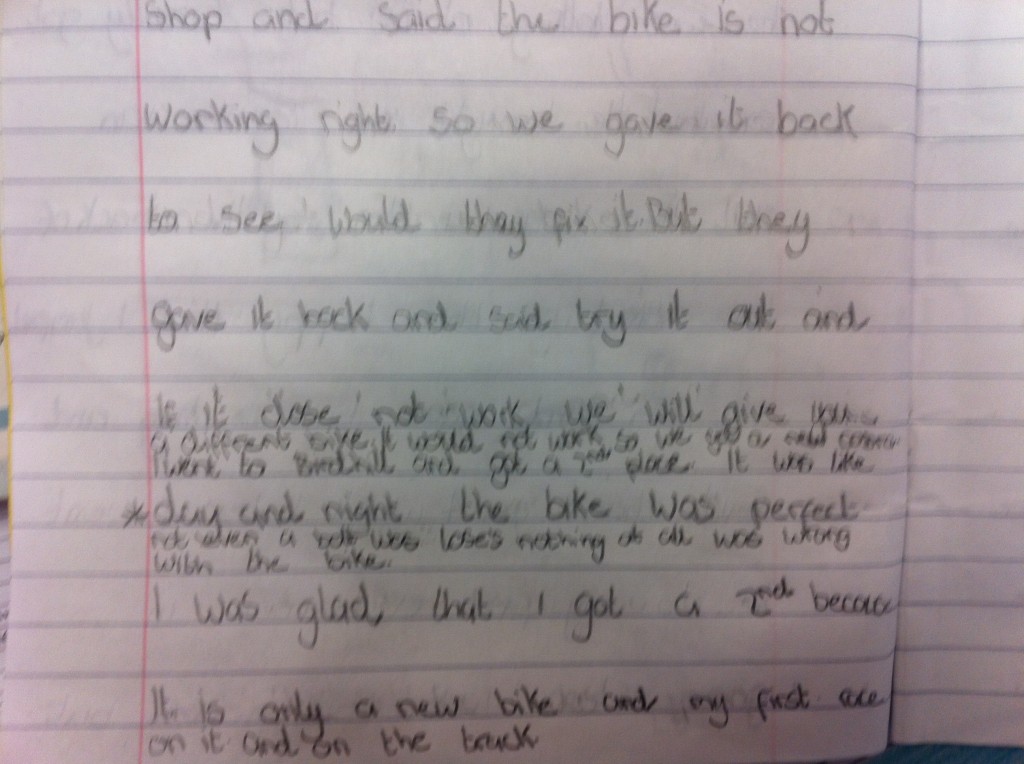 Shop and said the bike is not
working right. So we gave it back
to see would thay fix it. But they
gave it back and said try it out and
If it dose not work we will give you
a different bike. it would not work so we got a
I went to and got a 2nd place. It was like
*day and night the bike was perfect
not even a bolt was loses nothing at all was wrong
with the bike.
I was glad, that I got a 2nd becau
It is only a new bike and my first ace
on it and on the track